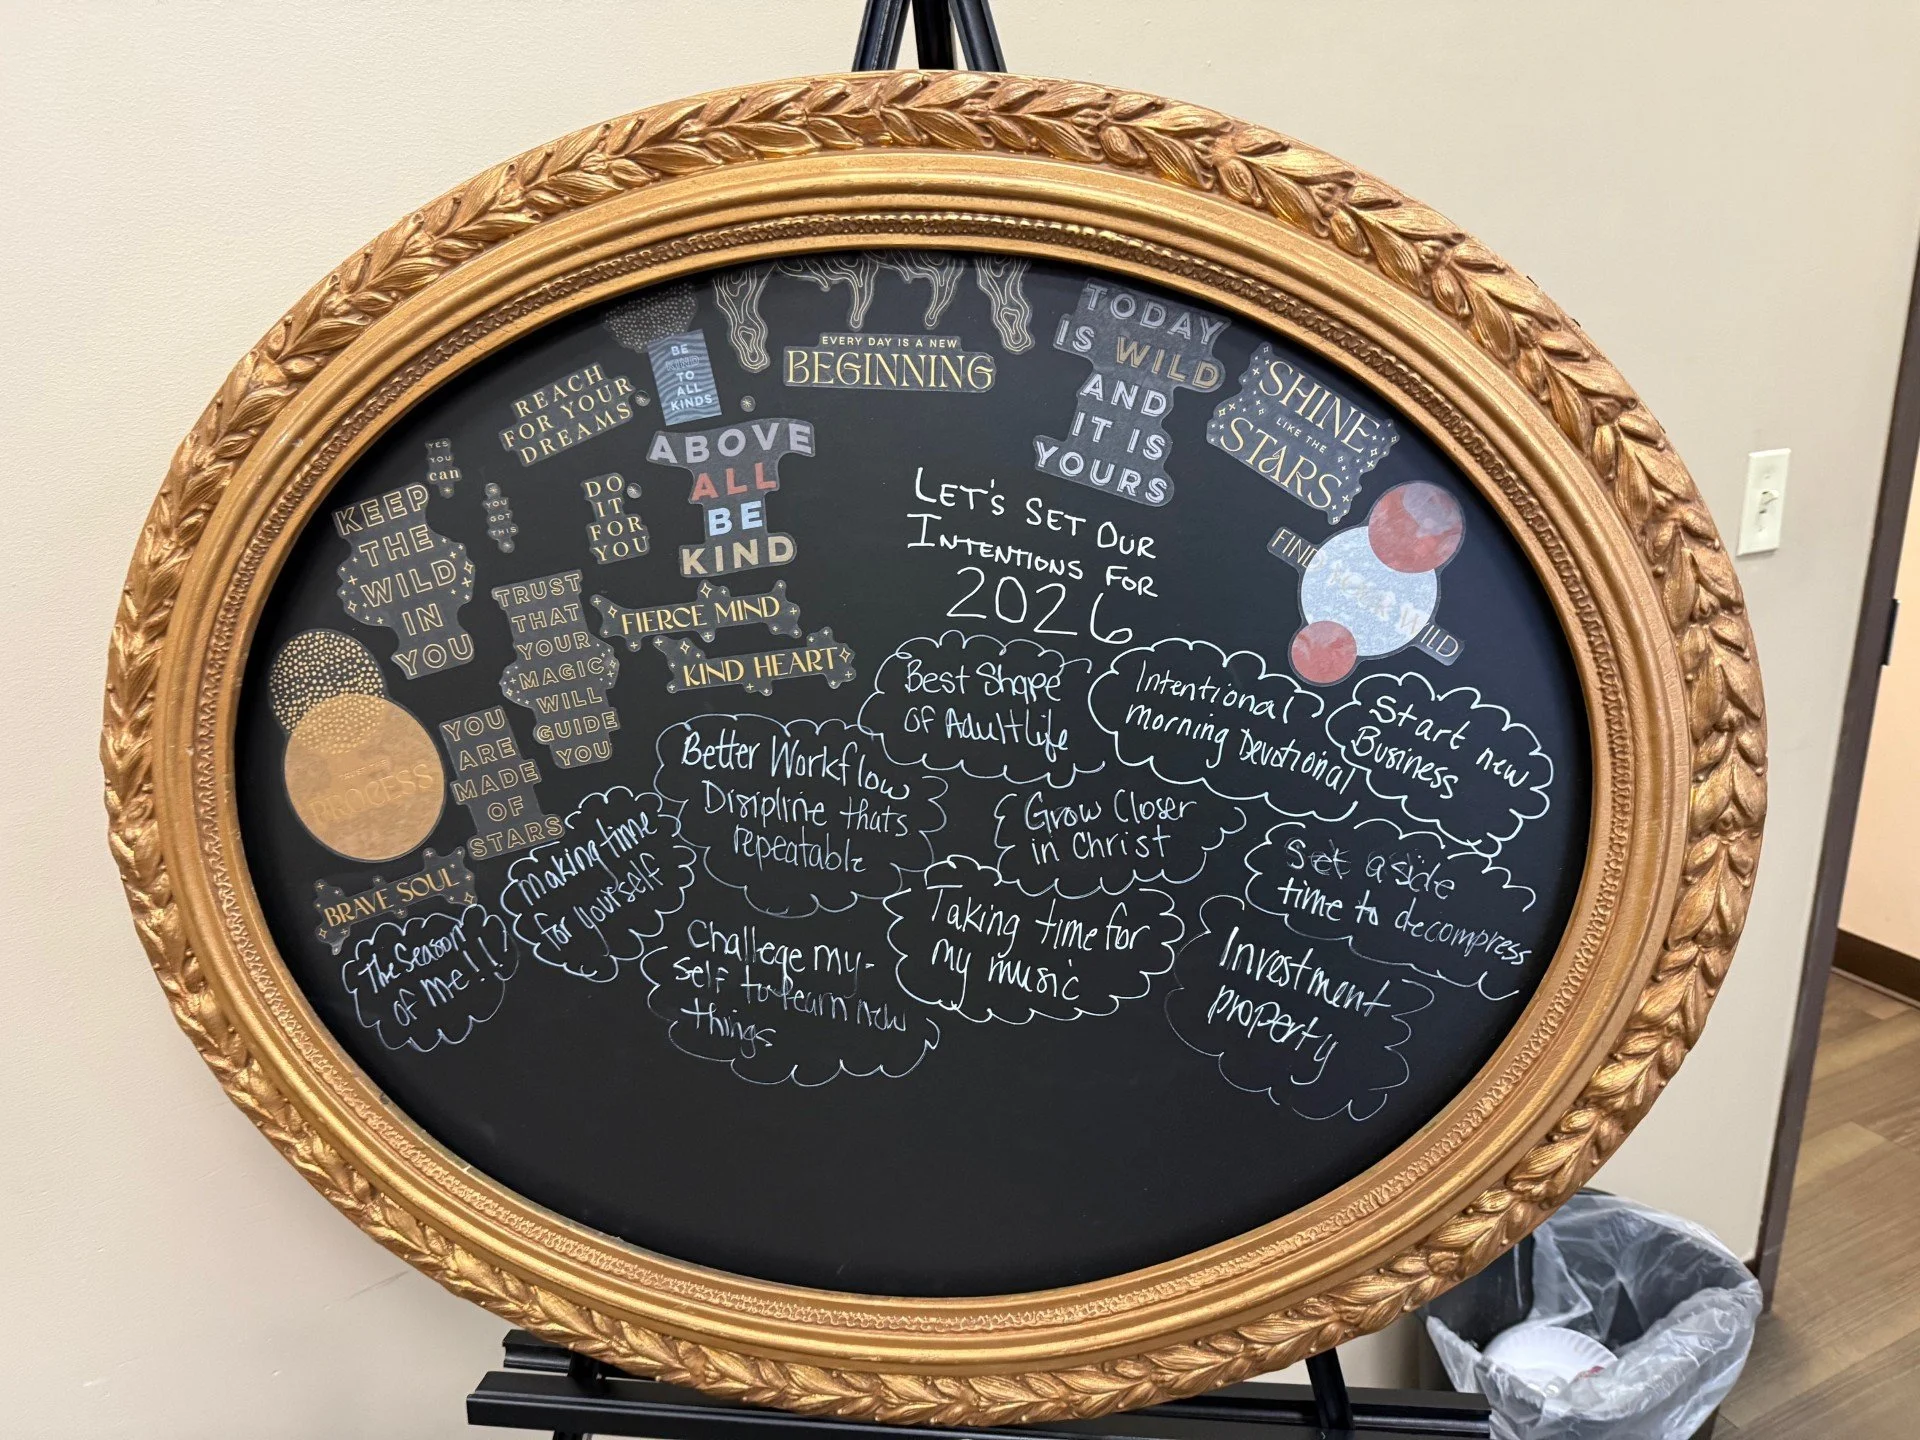 EVERY DAY IS A NEW
BEGINNING
TODAY
IS WILD
AND
IT IS
YOURS
SHINE
LIKE THE
STARS
BE
KIND
TO
ALL
KINDS
REACH
FOR YOUR
DREAMS
YES
YOU
can
ABOVE
ALL
BE
KIND
KEEP
THE
WILD
IN
YOU
YOU
GOT
THIS
DO
IT
FOR
YOU
FIND
WILD
TRUST
THAT
YOUR
MAGIC
WILL
GUIDE
YOU
FIERCE MIND
KIND HEART
PROCESS
YOU
ARE
MADE
OF
STARS
BRAVE SOUL
LET'S SET OUR
INTENTIONS FOR
2026
Best Shape
of Adult life
Intentional
morning Devotional
Start new
Business
Better Workflow
Disipline thats
repeatable
Grow Closer
in Christ
Set aside
time to decompress
making time
for yourself
The Season
of me!!
Challege my-
self to learn new
things
Taking time for
my music
Investment
property